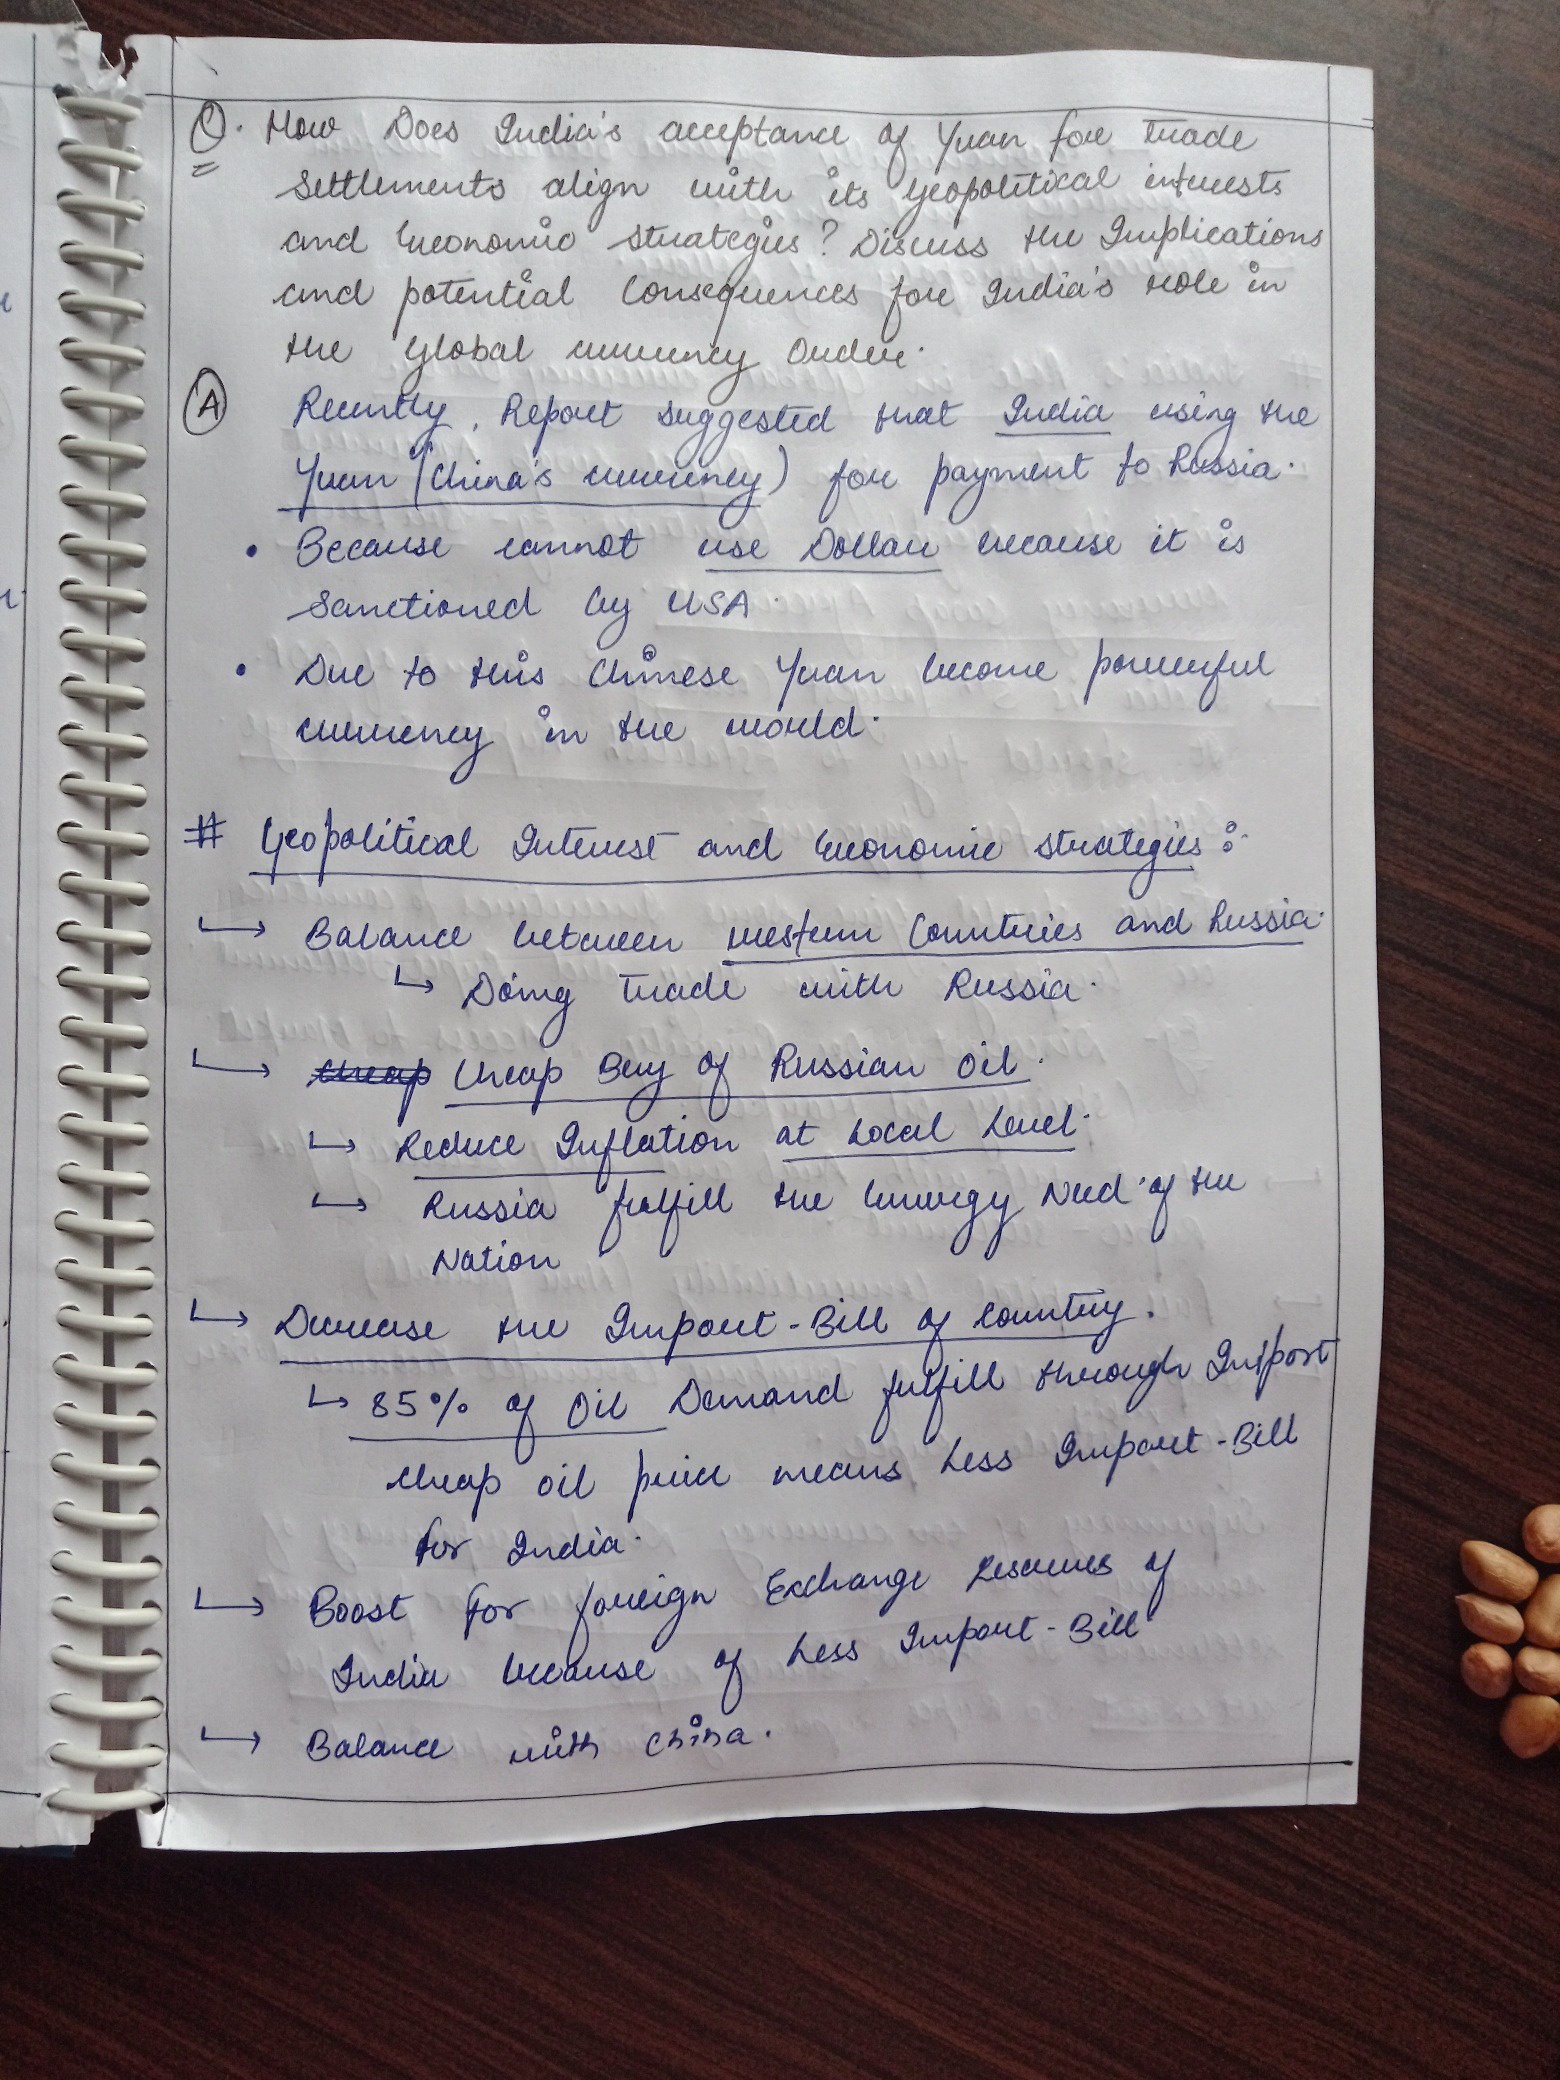 Q. How Does India's acceptance of Yuan for trade
settlements align with its geopolitical interests
and Economic strategies? Discuss the Implications
and potential Consequences for India's role in
the global currency Order.
A Recently, Report suggested that India using the
Yuan (China's currency) for payment to Russia.
• Because cannot use Dollar because it is
Sanctioned by USA.
• Due to this Chinese Yuan become powerful
currency in the world.
# Geopolitical Interest and Economic strategies :-
↳ Balance between western Countries and Russia.
↳ Doing trade with Russia.
↳ cheap Cheap Buy of Russian Oil.
↳ Reduce Inflation at Local Level.
↳ Russia fulfill the Energy Need of the
Nation
↳ Decrease the Import-Bill of Country.
↳ 85% of Oil Demand fulfill through Import
cheap oil price means Less Import-Bill
for India.
↳ Boost for foreign Exchange Reserves of
India because of Less Import-Bill
↳ Balance with China.